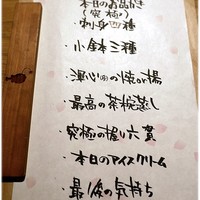 本日のお品がき
(究極)
・刺身四種
・小鉢三種
の焼の揚
・最高の茶碗蒸し
・究極の握り六貫
・本日のアイスクリーム
・最後の気持ち